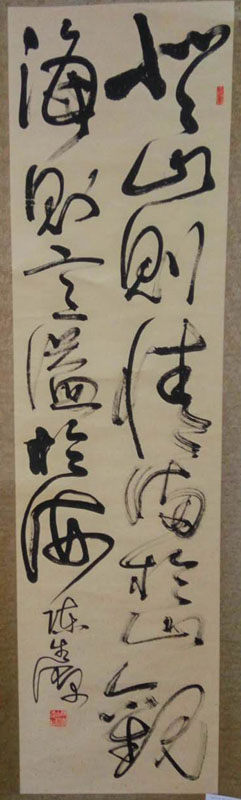 登山則情滿於山觀
海則意溢於海